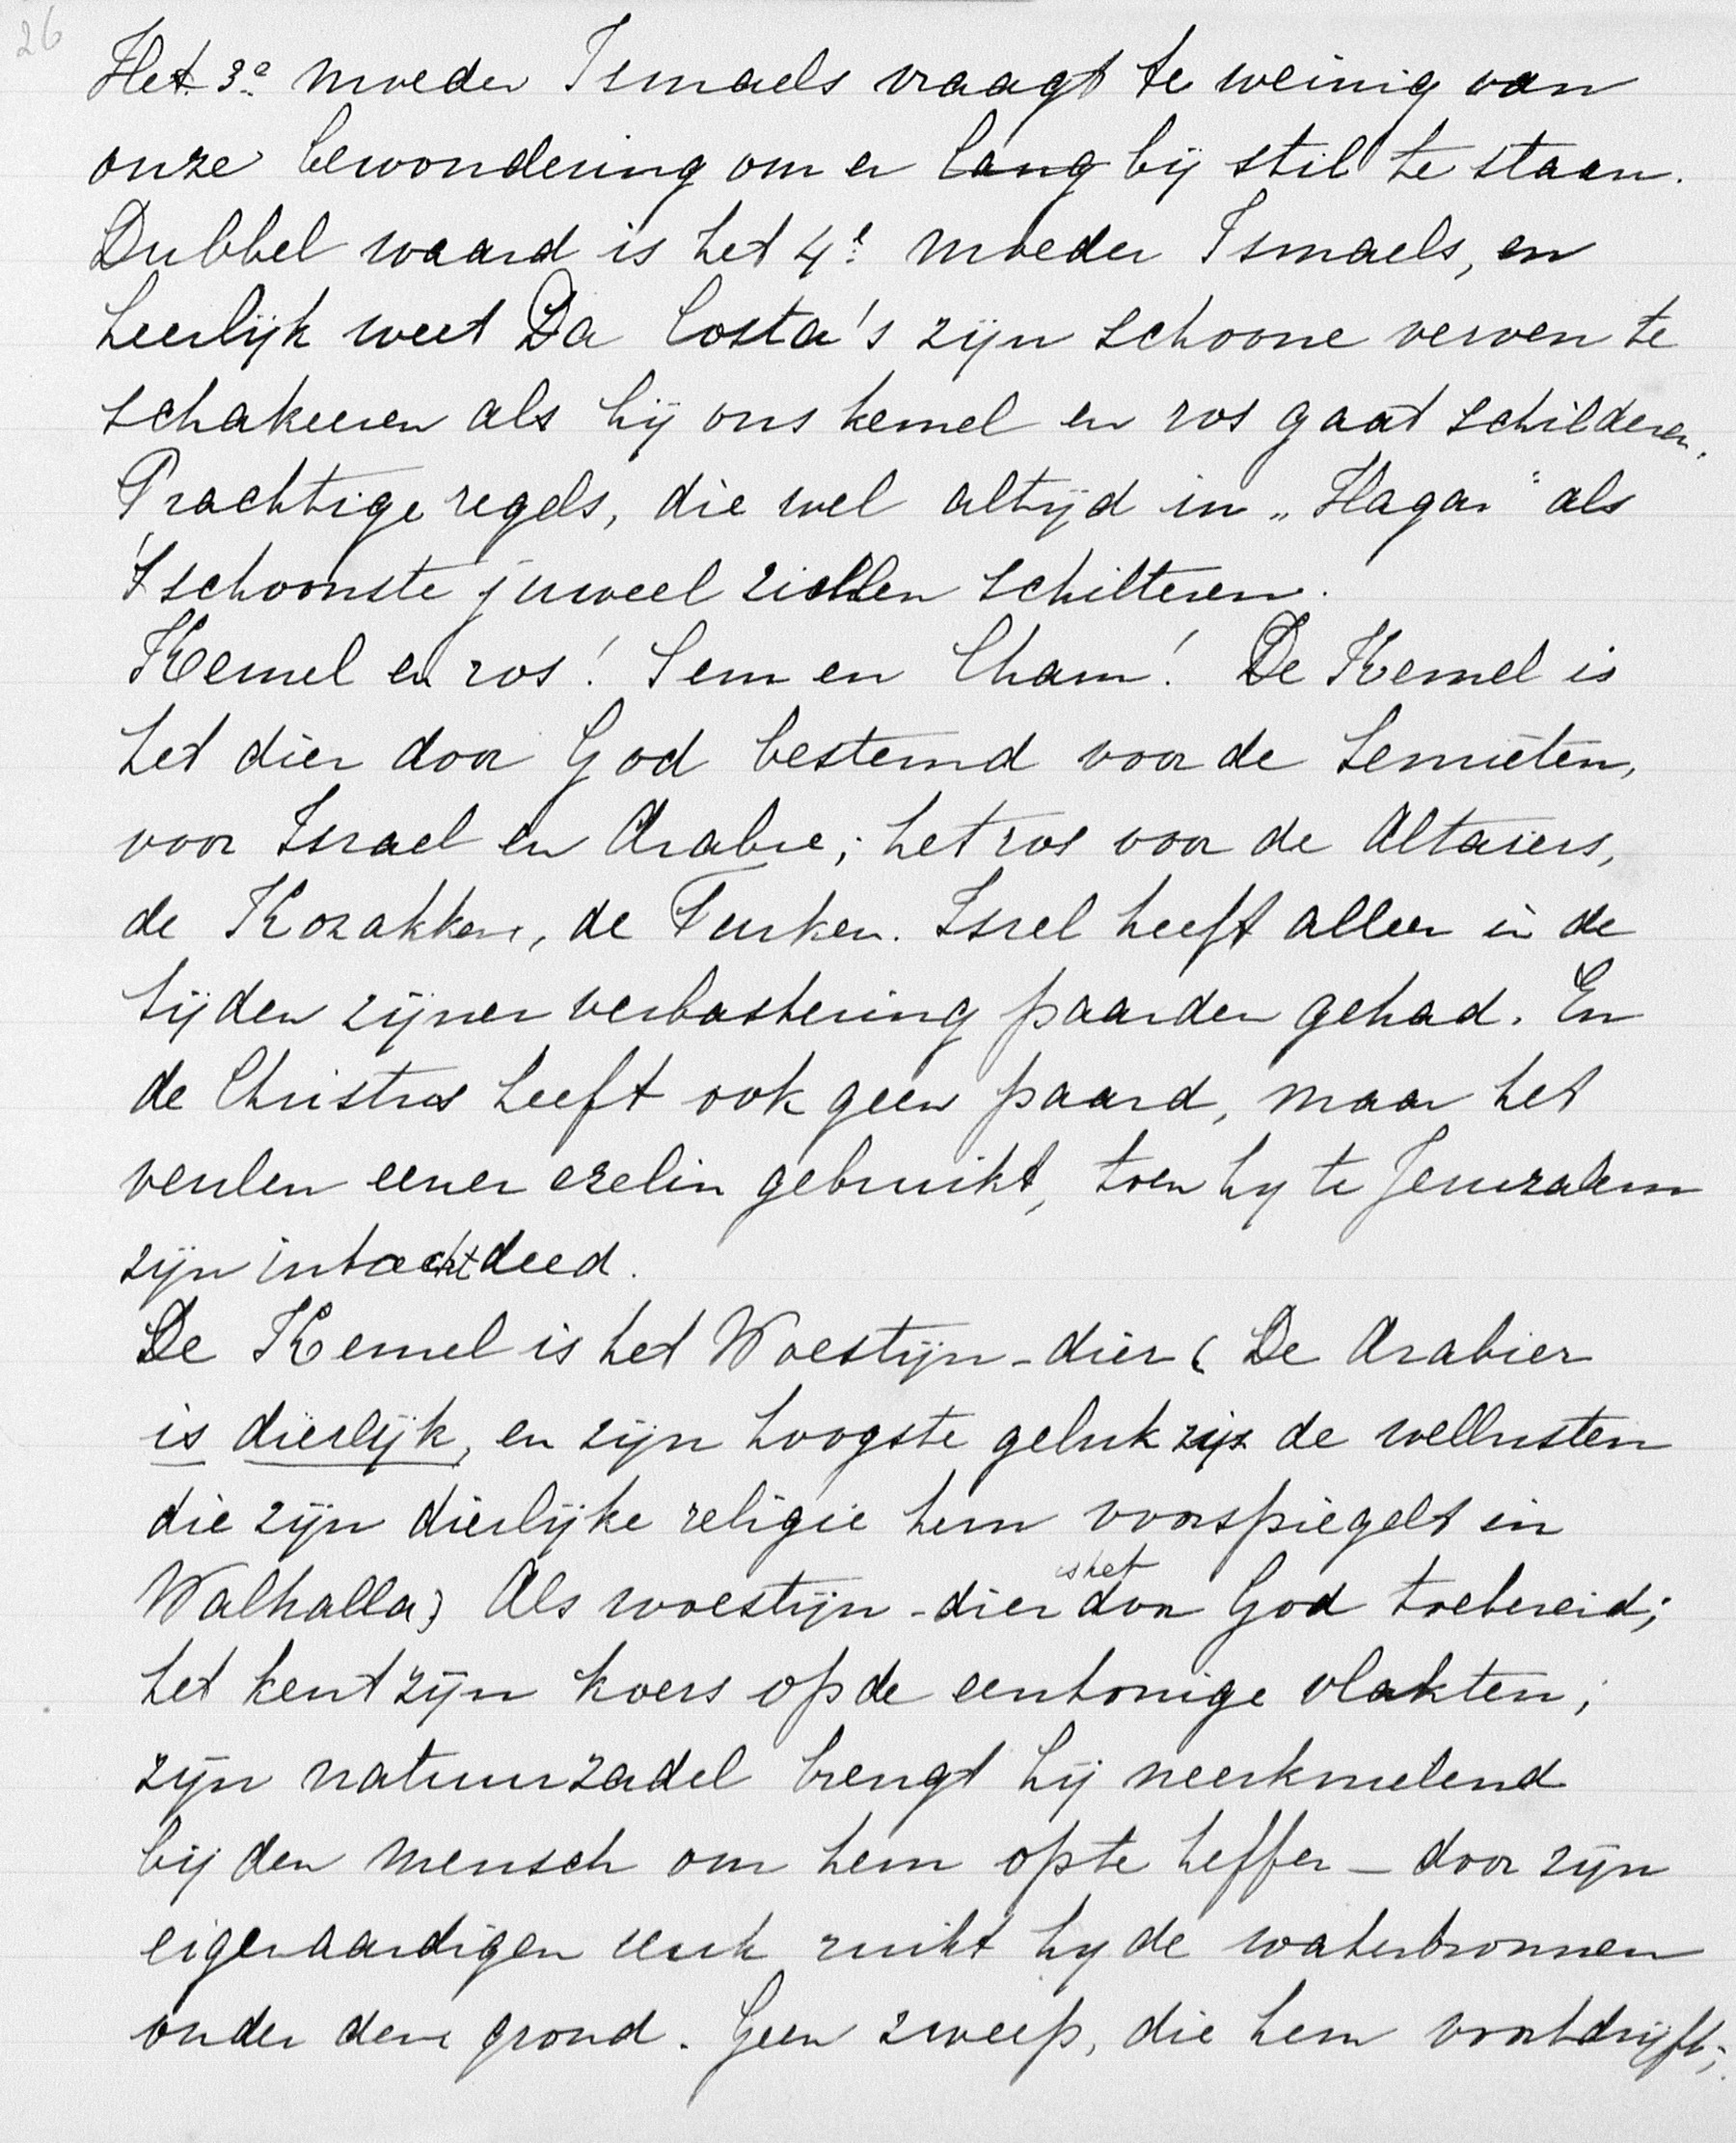 26
Het 3e moeder Ismaels vraagt te weinig van
onze bewondering om er lang bij stil te staan.
Dubbel waard is het 4e moeder Ismaels, en
heerlijk weet Da Costa's zijn schoone verven te
schakeeren als hij ons kemel en ros gaat schilderen.
Prachtige regels, die wel altijd in „Hagar" als
't schoonste juweel zullen schitteren.
Kemel en ros! Sem en Cham! De Kemel is
het dier door God bestemd voor de Semieten,
voor Israel en Arabie; het ros voor de Altaiers,
de Kozakken, de Turken. Isrel heeft alleen in de
tijden zijner verbastering paarden gehad. En
de Christus heeft ook geen paard, maar het
veulen eener ezelin gebruikt, toen hij te Jeruzalem
zijn intocht deed.
De Kemel is het Woestijn-dier (De Arabier
is dierlijk, en zijn hoogste geluk zijn de wellusten
die zijn dierlijke religie hem voorspiegelt in
Walhalla) Als woestijn-dier is het door God toebereid;
het kent zijn koers op de eentonige vlakten;
zijn natuurzadel brengt hij neerknielend
bij den mensch om hem op te heffen – door zijn
eigenaardigen reuk ruikt hij de waterbronnen
onder den grond. Geen zweep, die hem voortdrijft;